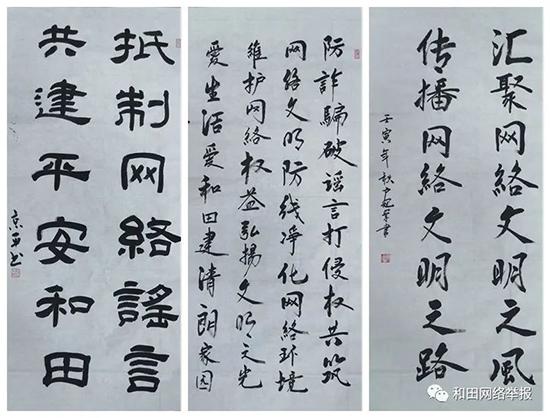 抵制网絡謠言
共建平安和田
防詐騙破谣言打侵权共筑
网絡文明防线净化网絡环境
維护网絡权益弘揚文明之光
愛生活愛和田建清朗家园
汇聚网絡文明之風
传播网絡文明之路
壬寅年秋
和田网络举报